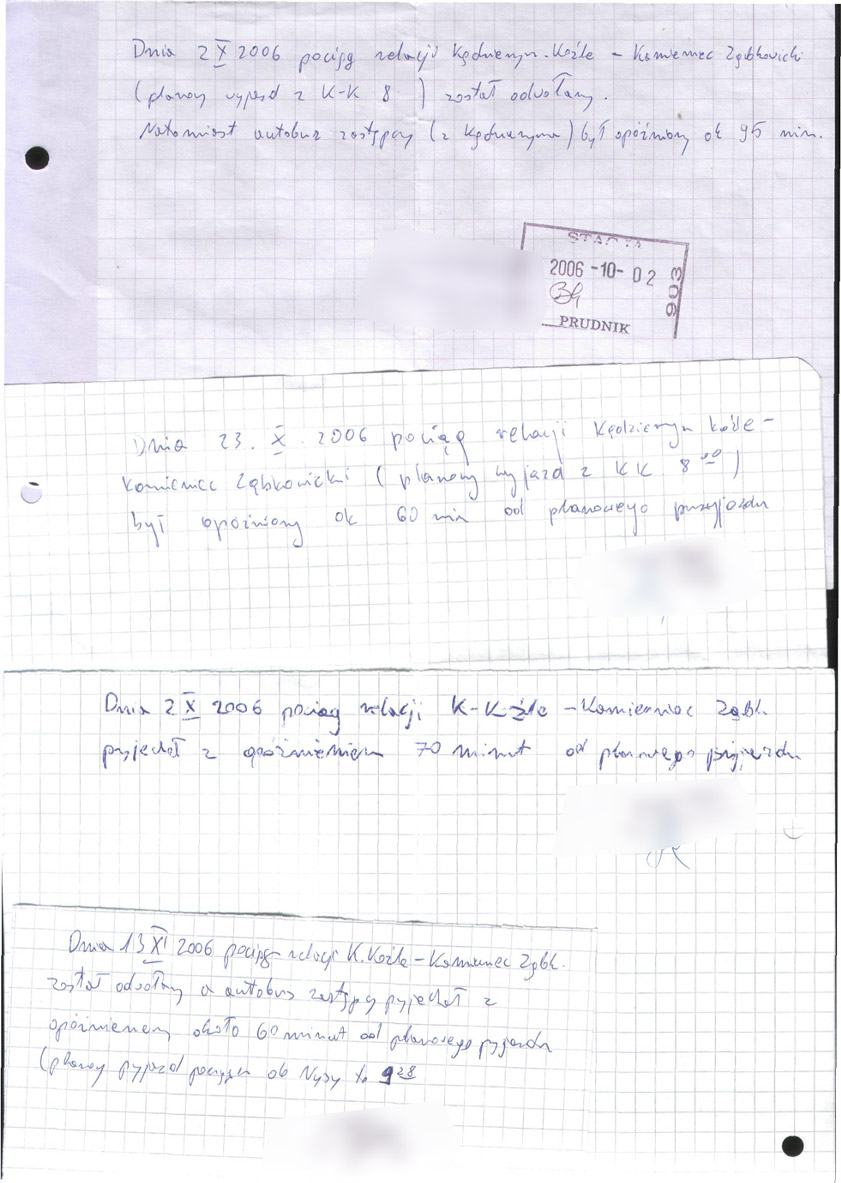 Dnia 2 X 2006 pociąg relacji Kędzierzyn.Koźle – Kamieniec Ząbkowicki
(planowy wyjazd z K-K 8 ) został odwołany.
Natomiast autobus zastępczy (z Kędzierzyna) był opóźniony ok 95 min.
STACJA
2006 -10- 02
903
PRUDNIK
Dnia 23. X. 2006 pociąg relacji Kędzierzyn Koźle –
Kamieniec Ząbkowicki ( planowy wyjazd z KK 8 00 )
był opóźniony ok 60 min od planowego przyjazdu
Dnia 2 X 2006 pociąg relacji K-Koźle – Kamieniec Ząbk.
przyjechał z opóźnieniem 70 minut od planowego przyjazdu
Dnia 13 XI 2006 pociąg relacji K.Koźle – Kamieniec Ząbk.
został odwołany a autobus zastępczy przyjechał z
opóźnieniem około 60 minut od planowego przyjazdu
(planowy przyjazd pociągu do Nysy to 9 28